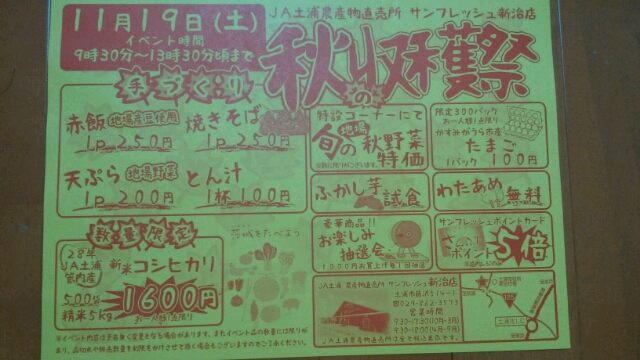 11月19日(土)
イベント時間
9時30分~13時30分頃まで
JA土浦農産物直売所 サンフレッシュ新治店
秋の収穫祭
手づくり
赤飯 地場産豆使用
1P 250円
焼きそば
1P 250円
天ぷら 地場野菜
1P 200円
とん汁
1杯 100円
特設コーナーにて
旬の地場秋野菜
特価
限定300パック
お一人様1点限り
かすみがうら市産
たまご
1パック 100円
ふかし芋 試食
わたあめ 無料
数量限定
28年
JA土浦 新米コシヒカリ
管内産
500袋
精米5kg
1600円
お一人様1点限り
茨城をたべよう
豪華商品!!
お楽しみ
抽選会
1000円お買上げ毎1回抽選
サンフレッシュポイントカード
ポイント5倍
JA土浦 農産物直売所 サンフレッシュ新治店
土浦市藤沢
営業時間
※イベント内容は予告無く変更となる場合があります。またイベント品の数量には限りが
あり、品切れや販売数量を制限をかけさせて頂く場合もございますのでご了承ください。